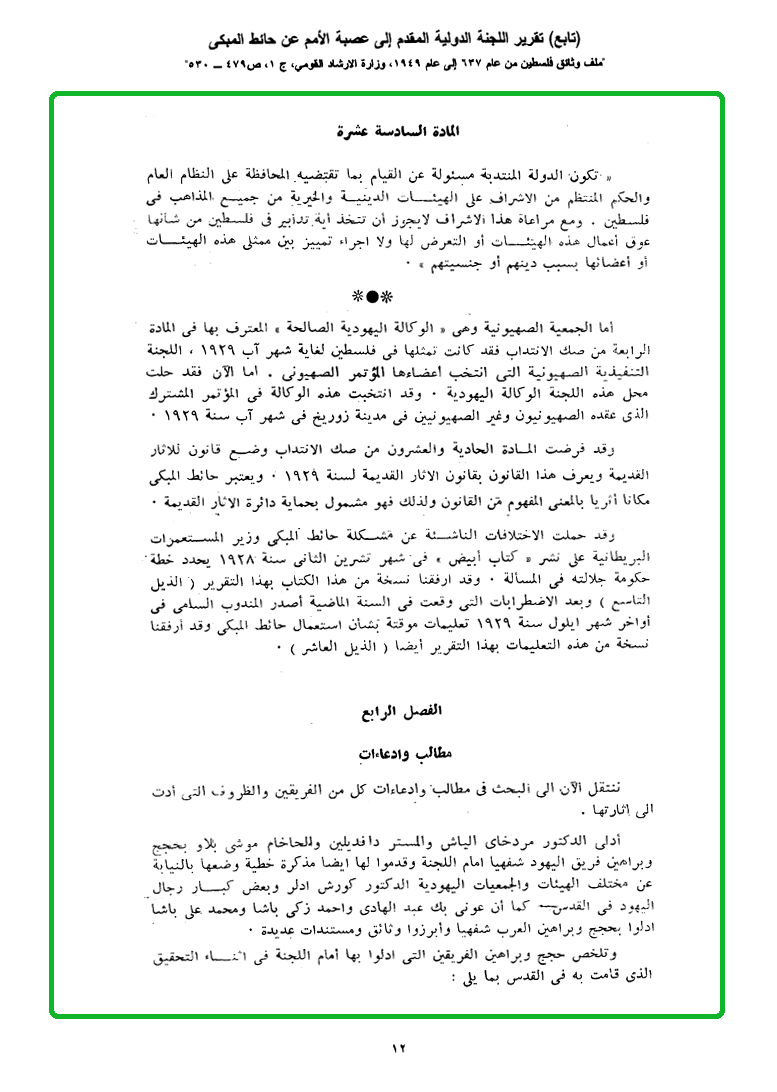 (تابع) تقرير اللجنة الدولية المقدم إلى عصبة الأمم عن حائط المبكى
"ملف وثائق فلسطين من عام ٦٣٧ إلى عام ١٩٤٩، وزارة الارشاد القومي، ج ١، ص ٤٧٩ ــ ٥٣٠"
المادة السادسة عشرة
« تكون الدولة المنتدبة مسئولة عن القيام بما تقتضيه المحافظة على النظام العام
والحكم المنتظم من الاشراف على الهيئات الدينية والخيرية من جميع المذاهب فى
فلسطين . ومع مراعاة هذا الاشراف لايجوز أن تتخذ أية تدابير فى فلسطين من شأنها
عوق أعمال هذه الهيئات أو التعرض لها ولا اجراء تمييز بين ممثلى هذه الهيئات
أو أعضائها بسبب دينهم أو جنسيتهم » ٠
※●※
أما الجمعية الصهيونية وهى « الوكالة اليهودية الصالحة » المعترف بها فى المادة
الرابعة من صك الانتداب فقد كانت تمثلها فى فلسطين لغاية شهر آب ١٩٢٩ ، اللجنة
التنفيذية الصهيونية التى انتخب أعضاءها المؤتمر الصهيونى . اما الآن فقد حلت
محل هذه اللجنة الوكالة اليهودية ٠ وقد انتخبت هذه الوكالة فى المؤتمر المشترك
الذى عقده الصهيونيون وغير الصهيونيين فى مدينة زوريخ فى شهر آب سنة ١٩٢٩ ٠
وقد فرضت المادة الحادية والعشرون من صك الانتداب وضع قانون للاثار
القديمة ويعرف هذا القانون بقانون الاثار القديمة لسنة ١٩٢٩ ٠ ويعتبر حائط المبكى
مكانا أثريا بالمعنى المفهوم من القانون ولذلك فهو مشمول بحماية دائرة الاثار القديمة ٠
وقد حملت الاختلافات الناشئة عن مشكلة حائط المبكى وزير المستعمرات
البريطانية على نشر « كتاب أبيض » فى شهر تشرين الثانى سنة ١٩٢٨ يحدد خطة
حكومة جلالته فى المسالة ٠ وقد ارفقنا نسخة من هذا الكتاب بهذا التقرير ( الذيل
التاسع ) وبعد الاضطرابات التى وقعت فى السنة الماضية أصدر المندوب السامى فى
أواخر شهر ايلول سنة ١٩٢٩ تعليمات موقتة بشأن استعمال حائط المبكى وقد أرفقنا
نسخة من هذه التعليمات بهذا التقرير أيضا ( الذيل العاشر ) ٠
الفصل الرابع
مطالب وادعاءات
ننتقل الآن الى البحث فى مطالب وادعاءات كل من الفريقين والظروف التى أدت
الى اثارتها .
أدلى الدكتور مردخاى الياش والمستر دافديلين والحاخام موشى بلاو بحجج
وبراهين فريق اليهود شفهيا امام اللجنة وقدموا لها ايضا مذكرة خطية وضعها بالنيابة
عن مختلف الهيئات والجمعيات اليهودية الدكتور كورش ادلر وبعض كبار رجال
اليهود فى القدس كما أن عونى بك عبد الهادى واحمد زكى باشا ومحمد على باشا
ادلوا بحجج وبراهين العرب شفهيا وأبرزوا وثائق ومستندات عديدة ٠
وتلخص حجج وبراهين الفريقين التى ادلوا بها أمام اللجنة فى اثناء التحقيق
الذى قامت به فى القدس بما يلى :
١٢